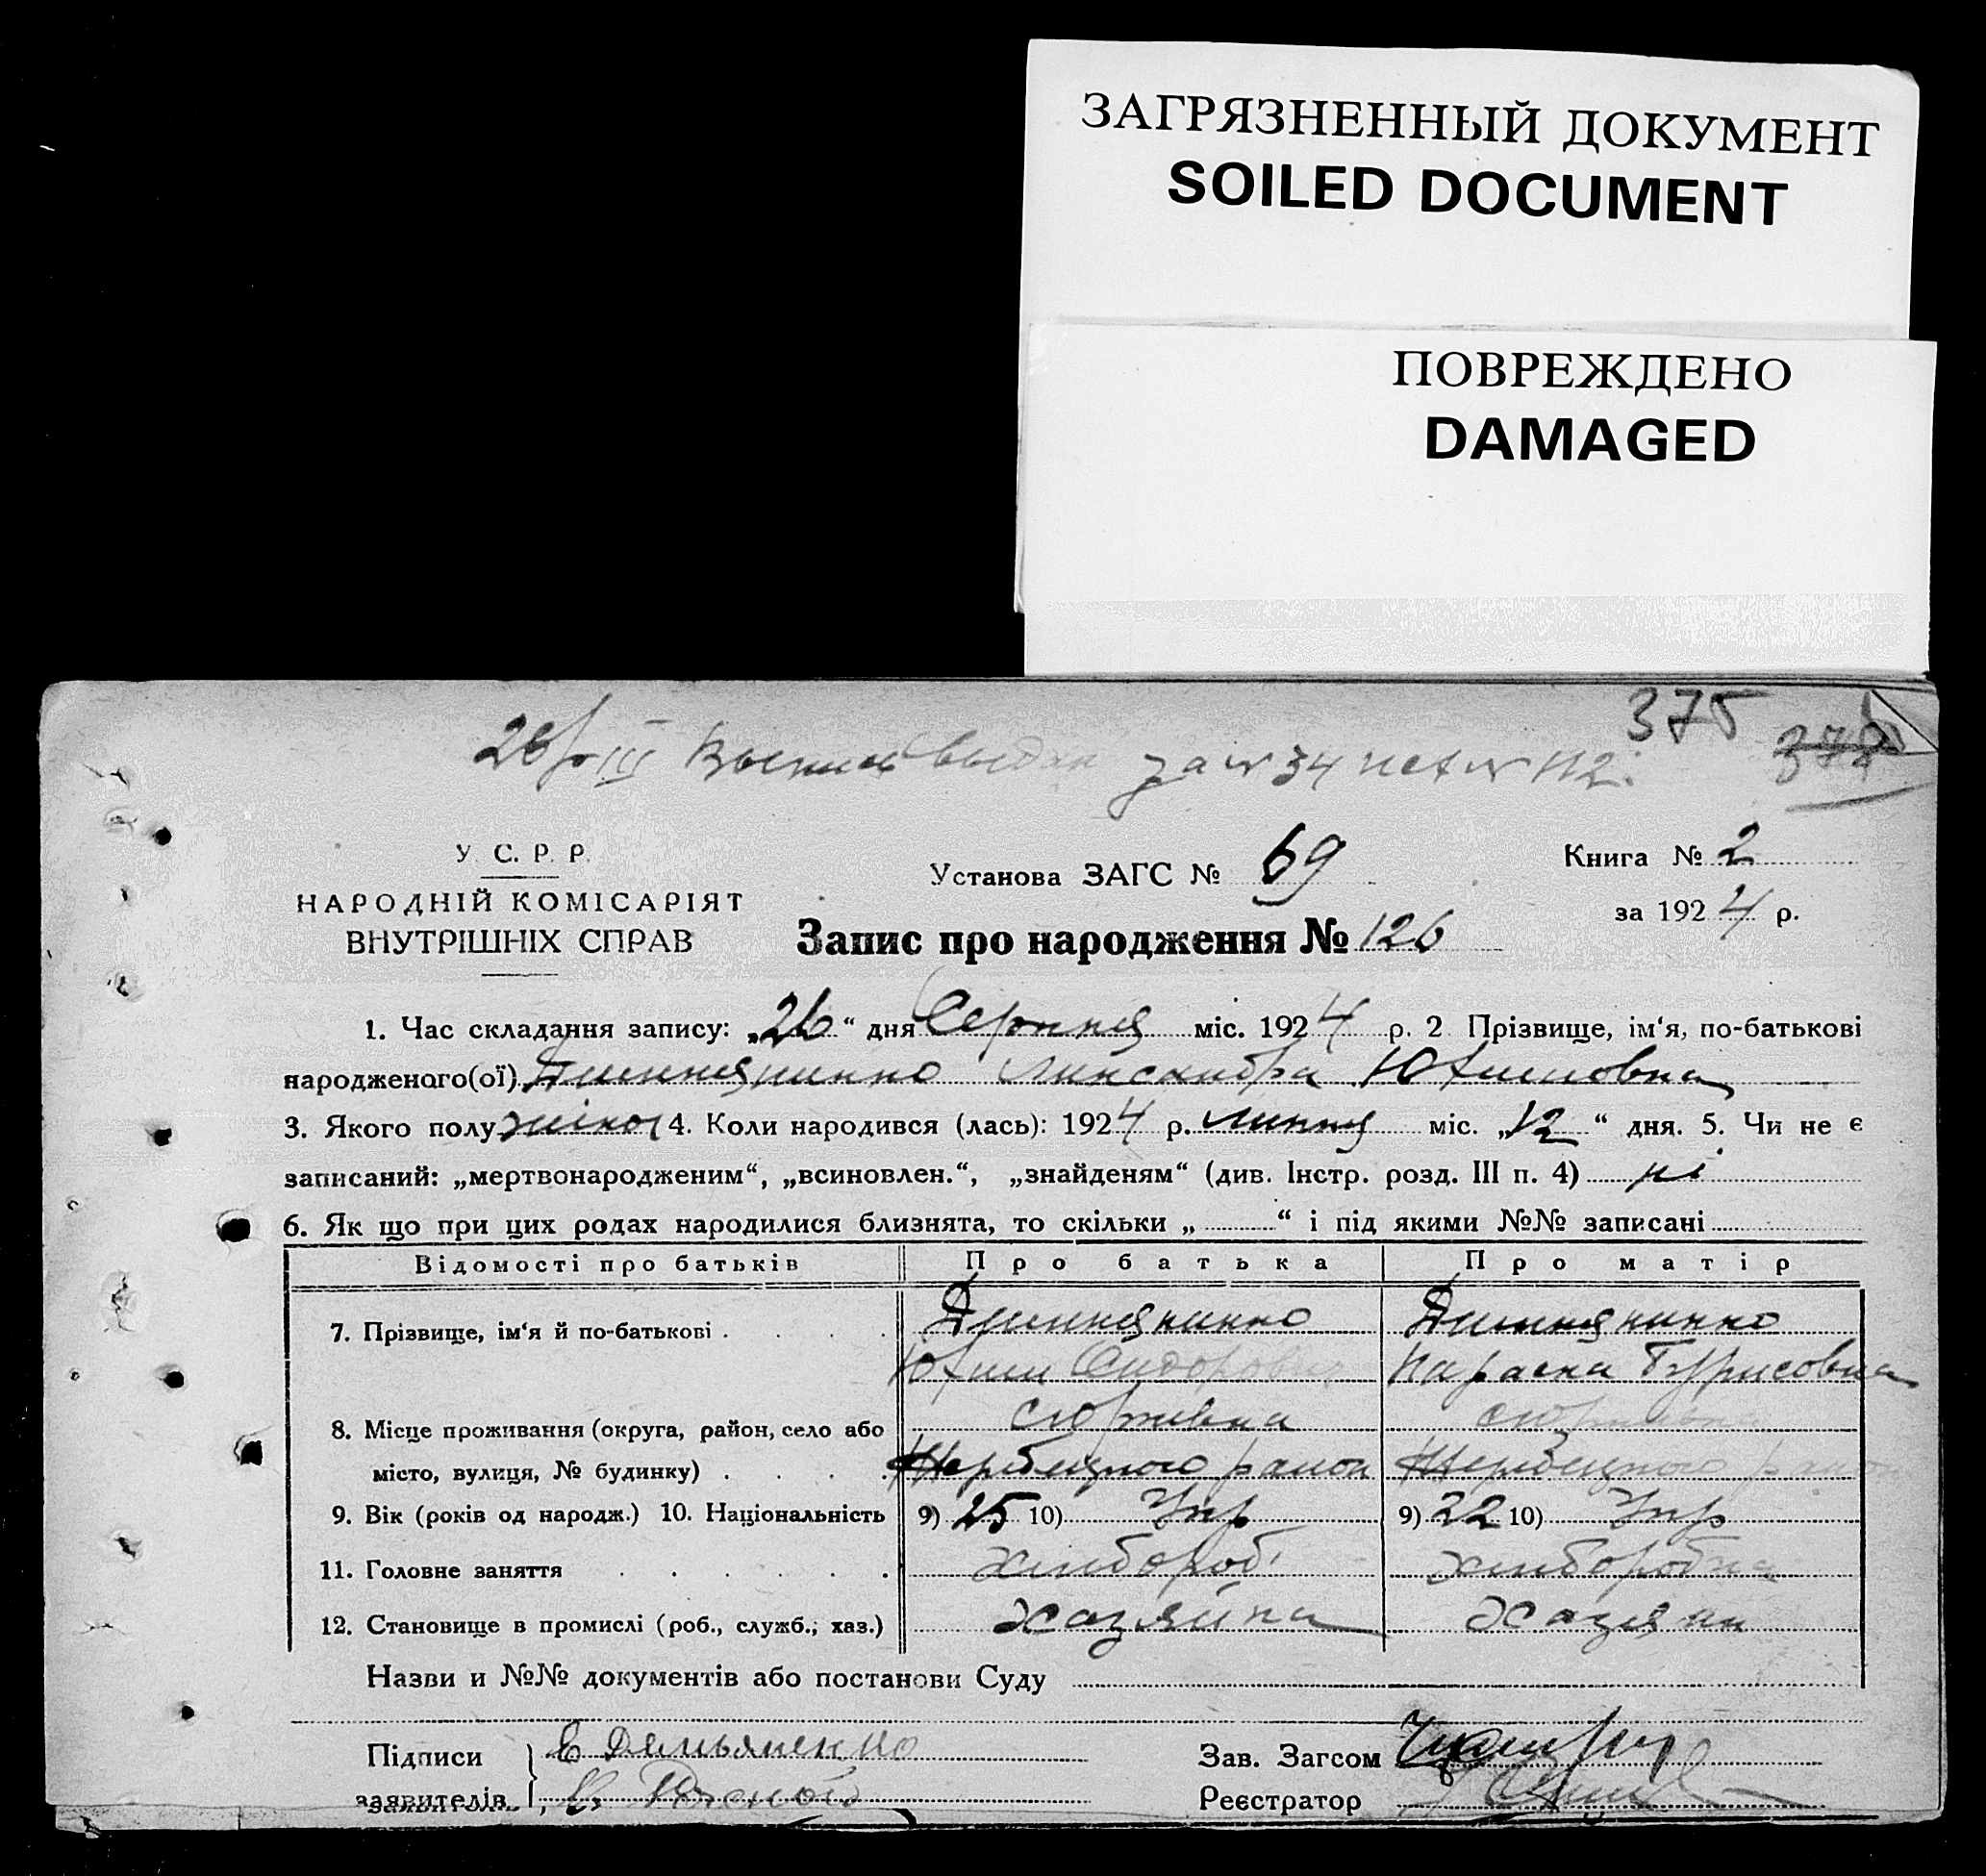 ЗАГРЯЗНЕННЫЙ ДОКУМЕНТ
SOILED DOCUMENT
ПОВРЕЖДЕНО
DAMAGED
375
26/III за № 34 исх № 112.
У. С. Р. Р.
НАРОДНІЙ КОМІСАРІЯТ
ВНУТРІШНІХ СПРАВ
Установа ЗАГС № 69
Книга № 2
за 1924 р.
Запис про народження № 126
1. Час складання запису: „26“ дня Серпня міс. 1924 р. 2 Прізвище, ім‘я, по-батькові
народженого(ої) Юхимовна
3. Якого полу жіноч 4. Коли народився (лась): 1924 р. липня міс. „12“ дня. 5. Чи не є
записаний: „мертвонародженим“, „всиновлен.“, „знайденям“ (див. Інстр. розд. III п. 4) ні
6. Як що при цих родах народилися близнята, то скільки „ “ і під якими №№ записані
Відомості про батьків Про батька Про матір
7. Прізвище, ім‘я й по-батькові
Юхим Сидорович Параска Борисовна
8. Місце проживання (округа, район, село або
місто, вулиця, № будинку) район район
9. Вік (років од народж.) 10. Національність 9) 25 10) Укр 9) 22 10) Укр
11. Головне заняття хлібороб хлібороб
12. Становище в промислі (роб., служб., хаз.) хазяйна хазяйн
Назви и №№ документів або постанови Суду
Підписи Е Демьяненко Зав. Загсом
заявителів Реєстратор